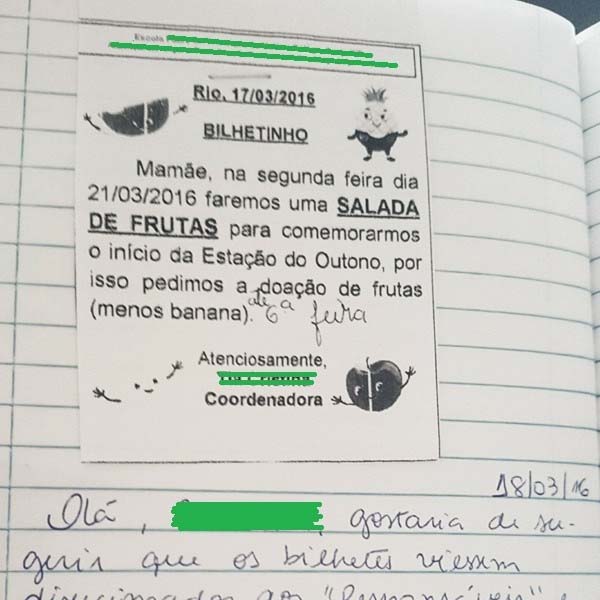 Escola
Rio, 17/03/2016
BILHETINHO
Mamãe, na segunda feira dia
21/03/2016 faremos uma SALADA
DE FRUTAS para comemorarmos
o início da Estação do Outono, por
isso pedimos a doação de frutas
(menos banana). até 6ª feira
Atenciosamente,
Coordenadora
18/03/16
Olá, , gostaria de su-
gerir que os bilhetes viessem
direcionados aos "Responsáveis" e